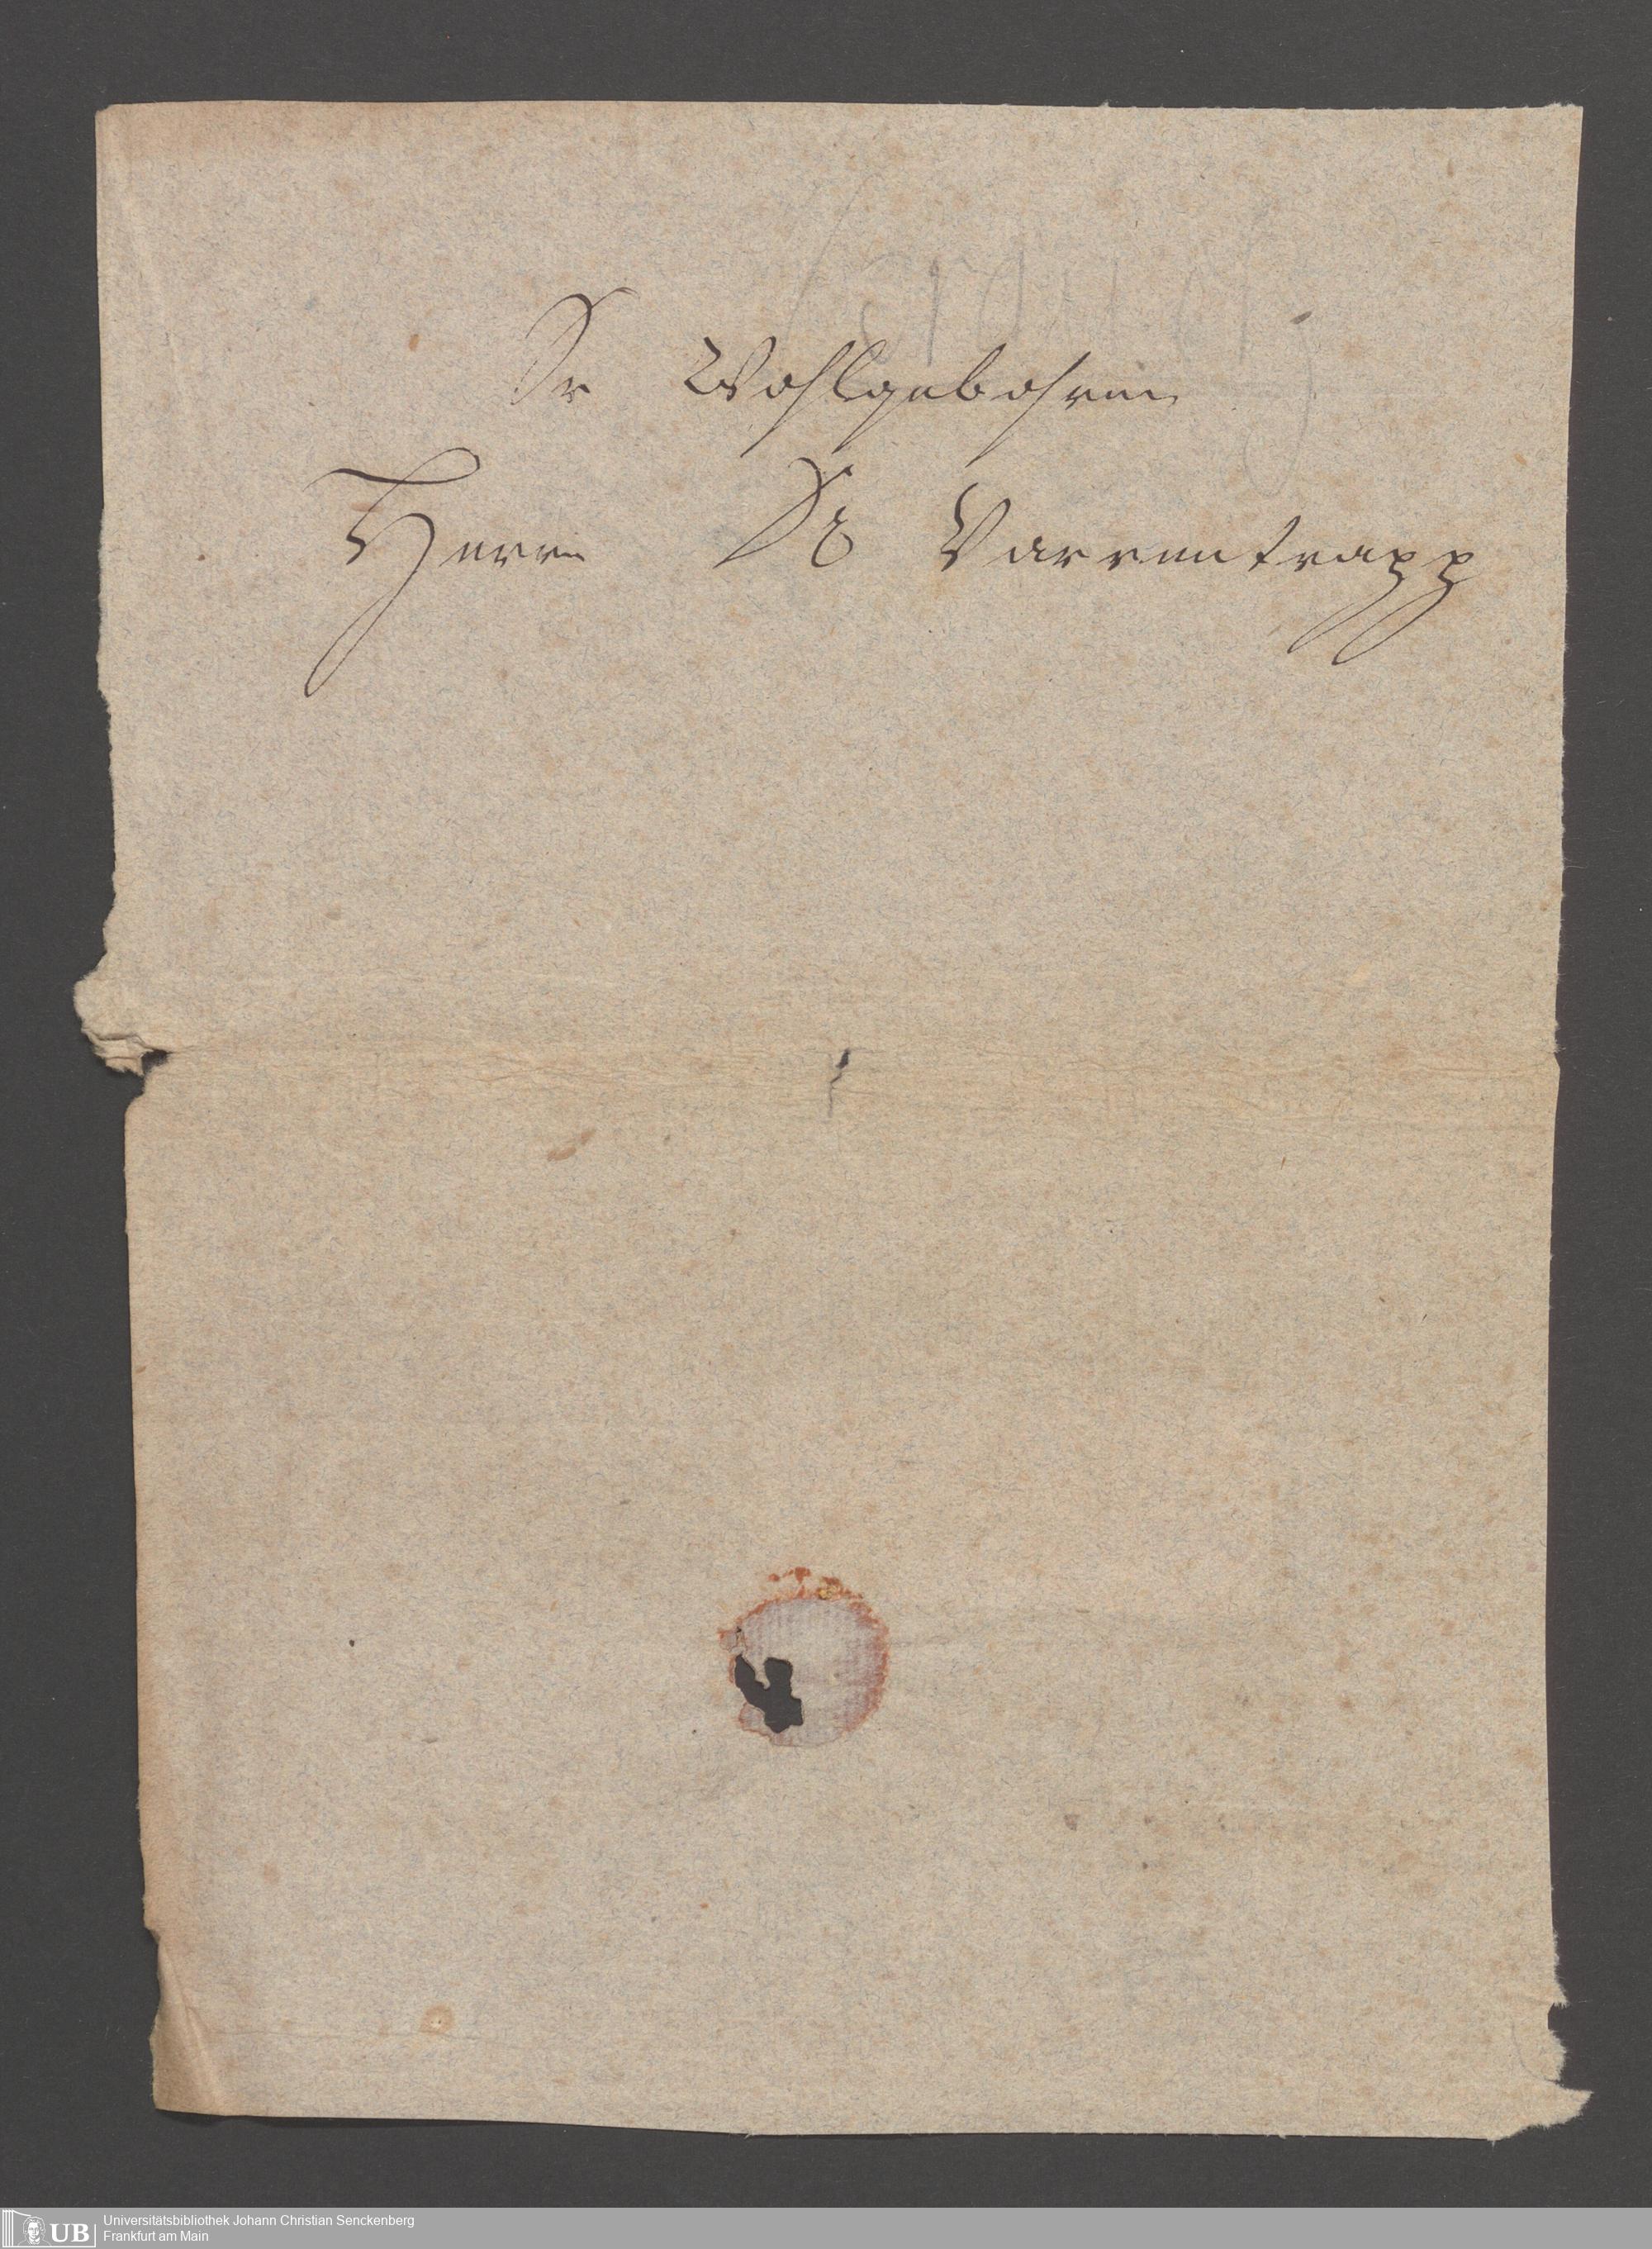 Sr Wohlgebohren
Herrn Dr Varrentrapp
UB
Universitätsbibliothek Johann Christian Senckenberg
Frankfurt am Main